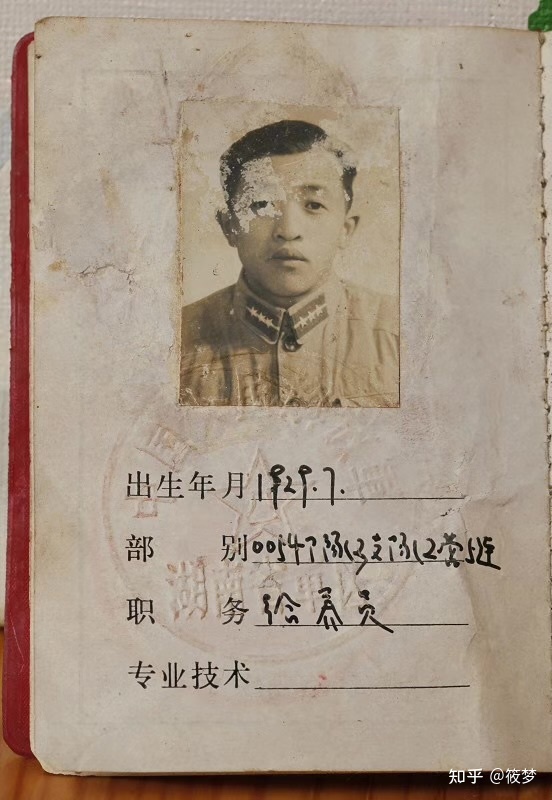 出生年月 1929.7.
部别 0054部队3支队2营5连
职务 给养员
专业技术
湖南
知乎 @筱梦